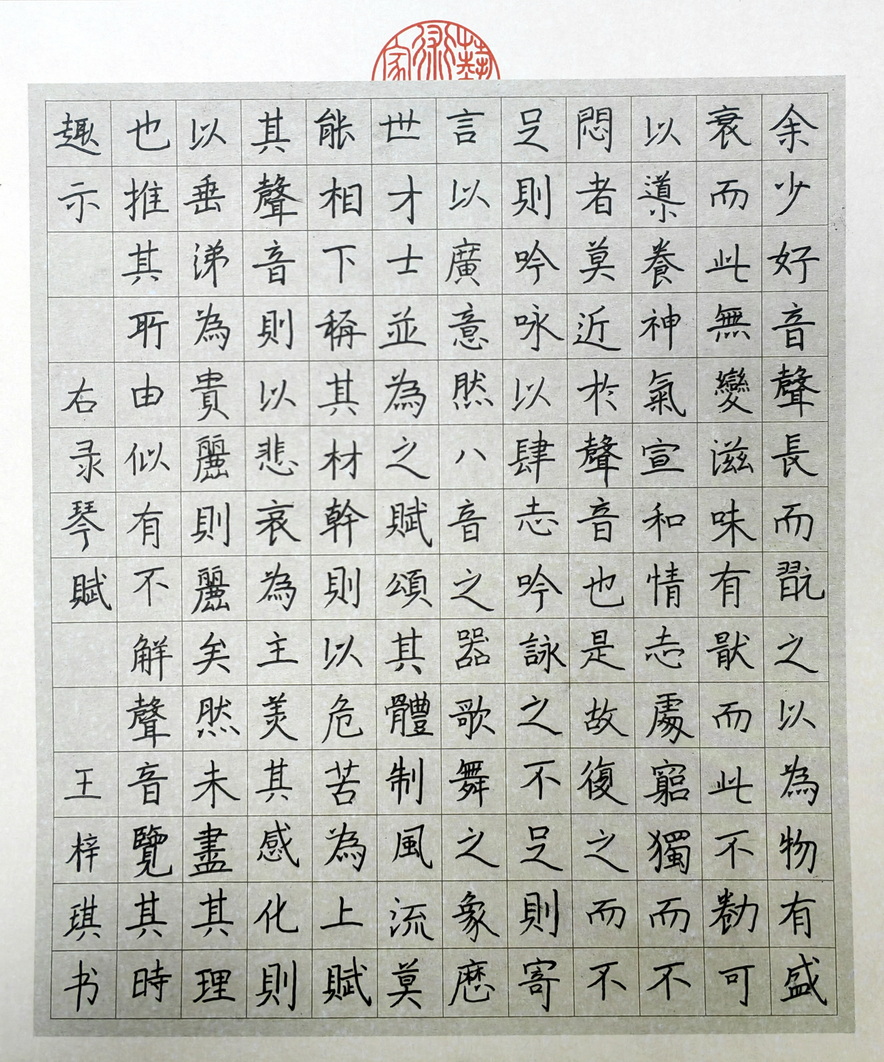 藝術家
余少好音聲長而翫之以為物有盛
衰而此無變滋味有猒而此不勌可
以導養神氣宣和情志處窮獨而不
悶者莫近於聲音也是故復之而不
足則吟咏以肆志吟詠之不足則寄
言以廣意然八音之器歌舞之象歷
世才士並為之賦頌其體制風流莫
能相下稱其材幹則以危苦為上賦
其聲音則以悲哀為主美其感化則
以垂涕為貴麗則麗矣然未盡其理
也推其所由似有不解聲音覽其時
趣示 右录琴賦 王梓琪书